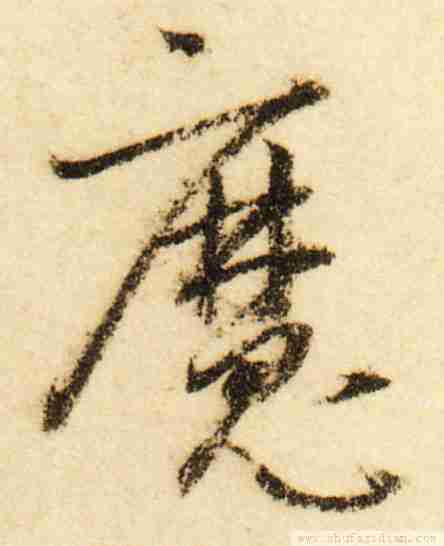 魔
www.shufazidian.com